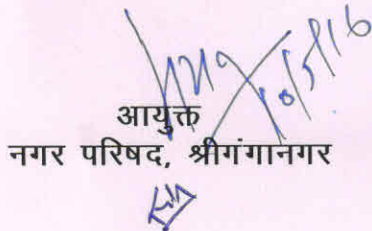 10/5/16
आयुक्त
नगर परिषद, श्रीगंगानगर